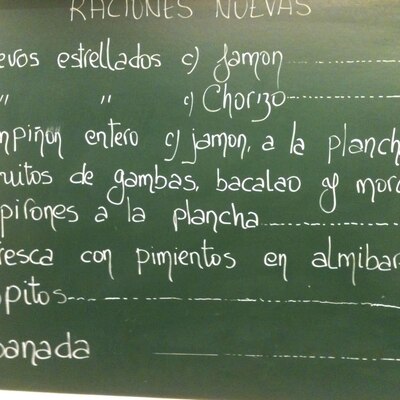 RACIONES NUEVAS
evos estrellados c/ Jamon
" " c/ Chorizo
npiñon entero c/ jamon, a la planch
ruitos de gambas, bacalao y/ morc
pirones a la plancha
resca con pimientos en almibar
opitos
panada